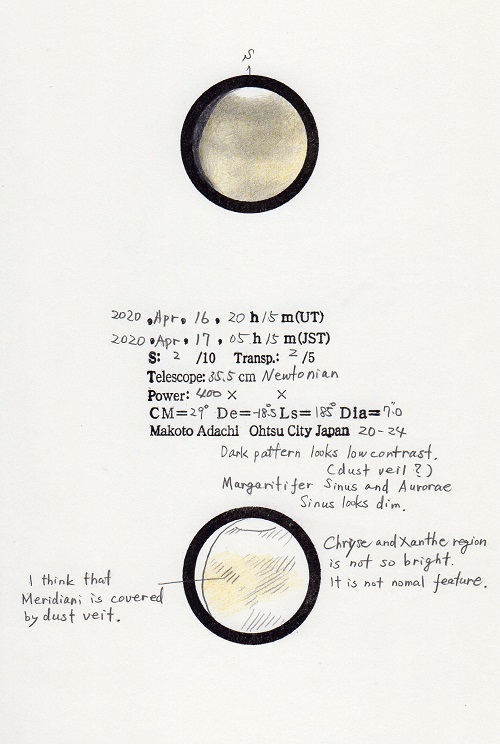 S
2020, Apr, 16, 20 h 15 m(UT)
2020, Apr, 17, 05 h 15 m(JST)
S: 2 /10 Transp.: 2 /5
Telescope: 35.5 cm Newtonian
Power: 400 × ×
CM=29° De=-18.5° Ls=185° Dia=7".0
Makoto Adachi Ohtsu City Japan 20-24
Dark pattern looks low contrast.
(dust veil?)
Margaritifer Sinus and Aurorae
Sinus looks dim.
Chryse and Xanthe region
is not so bright.
It is not nomal feature.
I think that
Meridiani is covered
by dust veit.